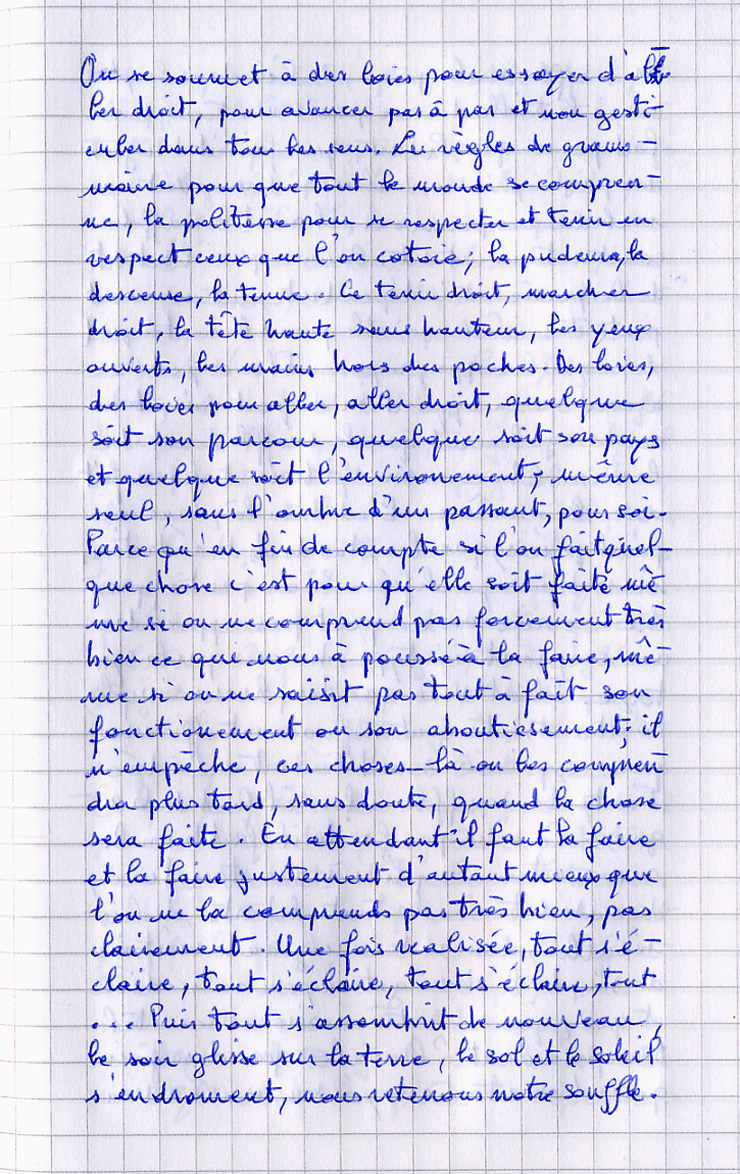 On se soumet à des loies pour essayer d'al-
ler droit, pour avancer pas à pas et non gesti-
culer dans tous les sens. Les règles de gram-
maire pour que tout le monde se compren-
ne, la politesse pour se respecter et tenir en
respect ceux que l'on cotoie; la pudeur, la
desceuse, la tenue. Ce tenir droit, marcher
droit, la tête haute sans hauteur, les yeux
ouverts, les mains hors des poches. Des loies,
des loies pour aller, aller droit, quelque
soit son parcour, quelque soit son pays
et quelque soit l'environement; même
seul, sans l'ombre d'un passant, pour soi.
Parce qu'en fin de compte si l'on fait quel-
que chose c'est pour qu'elle soit faite mê-
me si on ne comprend pas forcement très
bien ce qui nous à poussé à la faire, mê-
me si on ne saisit pas tout à fait son
fonctionement ou son aboutissement; il
n'empêche, ces choses-là on les compren-
dra plus tard, sans doute, quand la chose
sera faite. En attendant il faut la faire
et la faire justement d'autant mieux que
l'on ne la comprends pas très bien, pas
clairement. Une fois realisée, tout s'é-
claire, tout s'éclaire, tout s'éclaire, tout
... Puis tout s'assombrit de nouveau,
le soir glisse sur la terre, le sol et le soleil
s'endroment, nous retenons notre souffle.